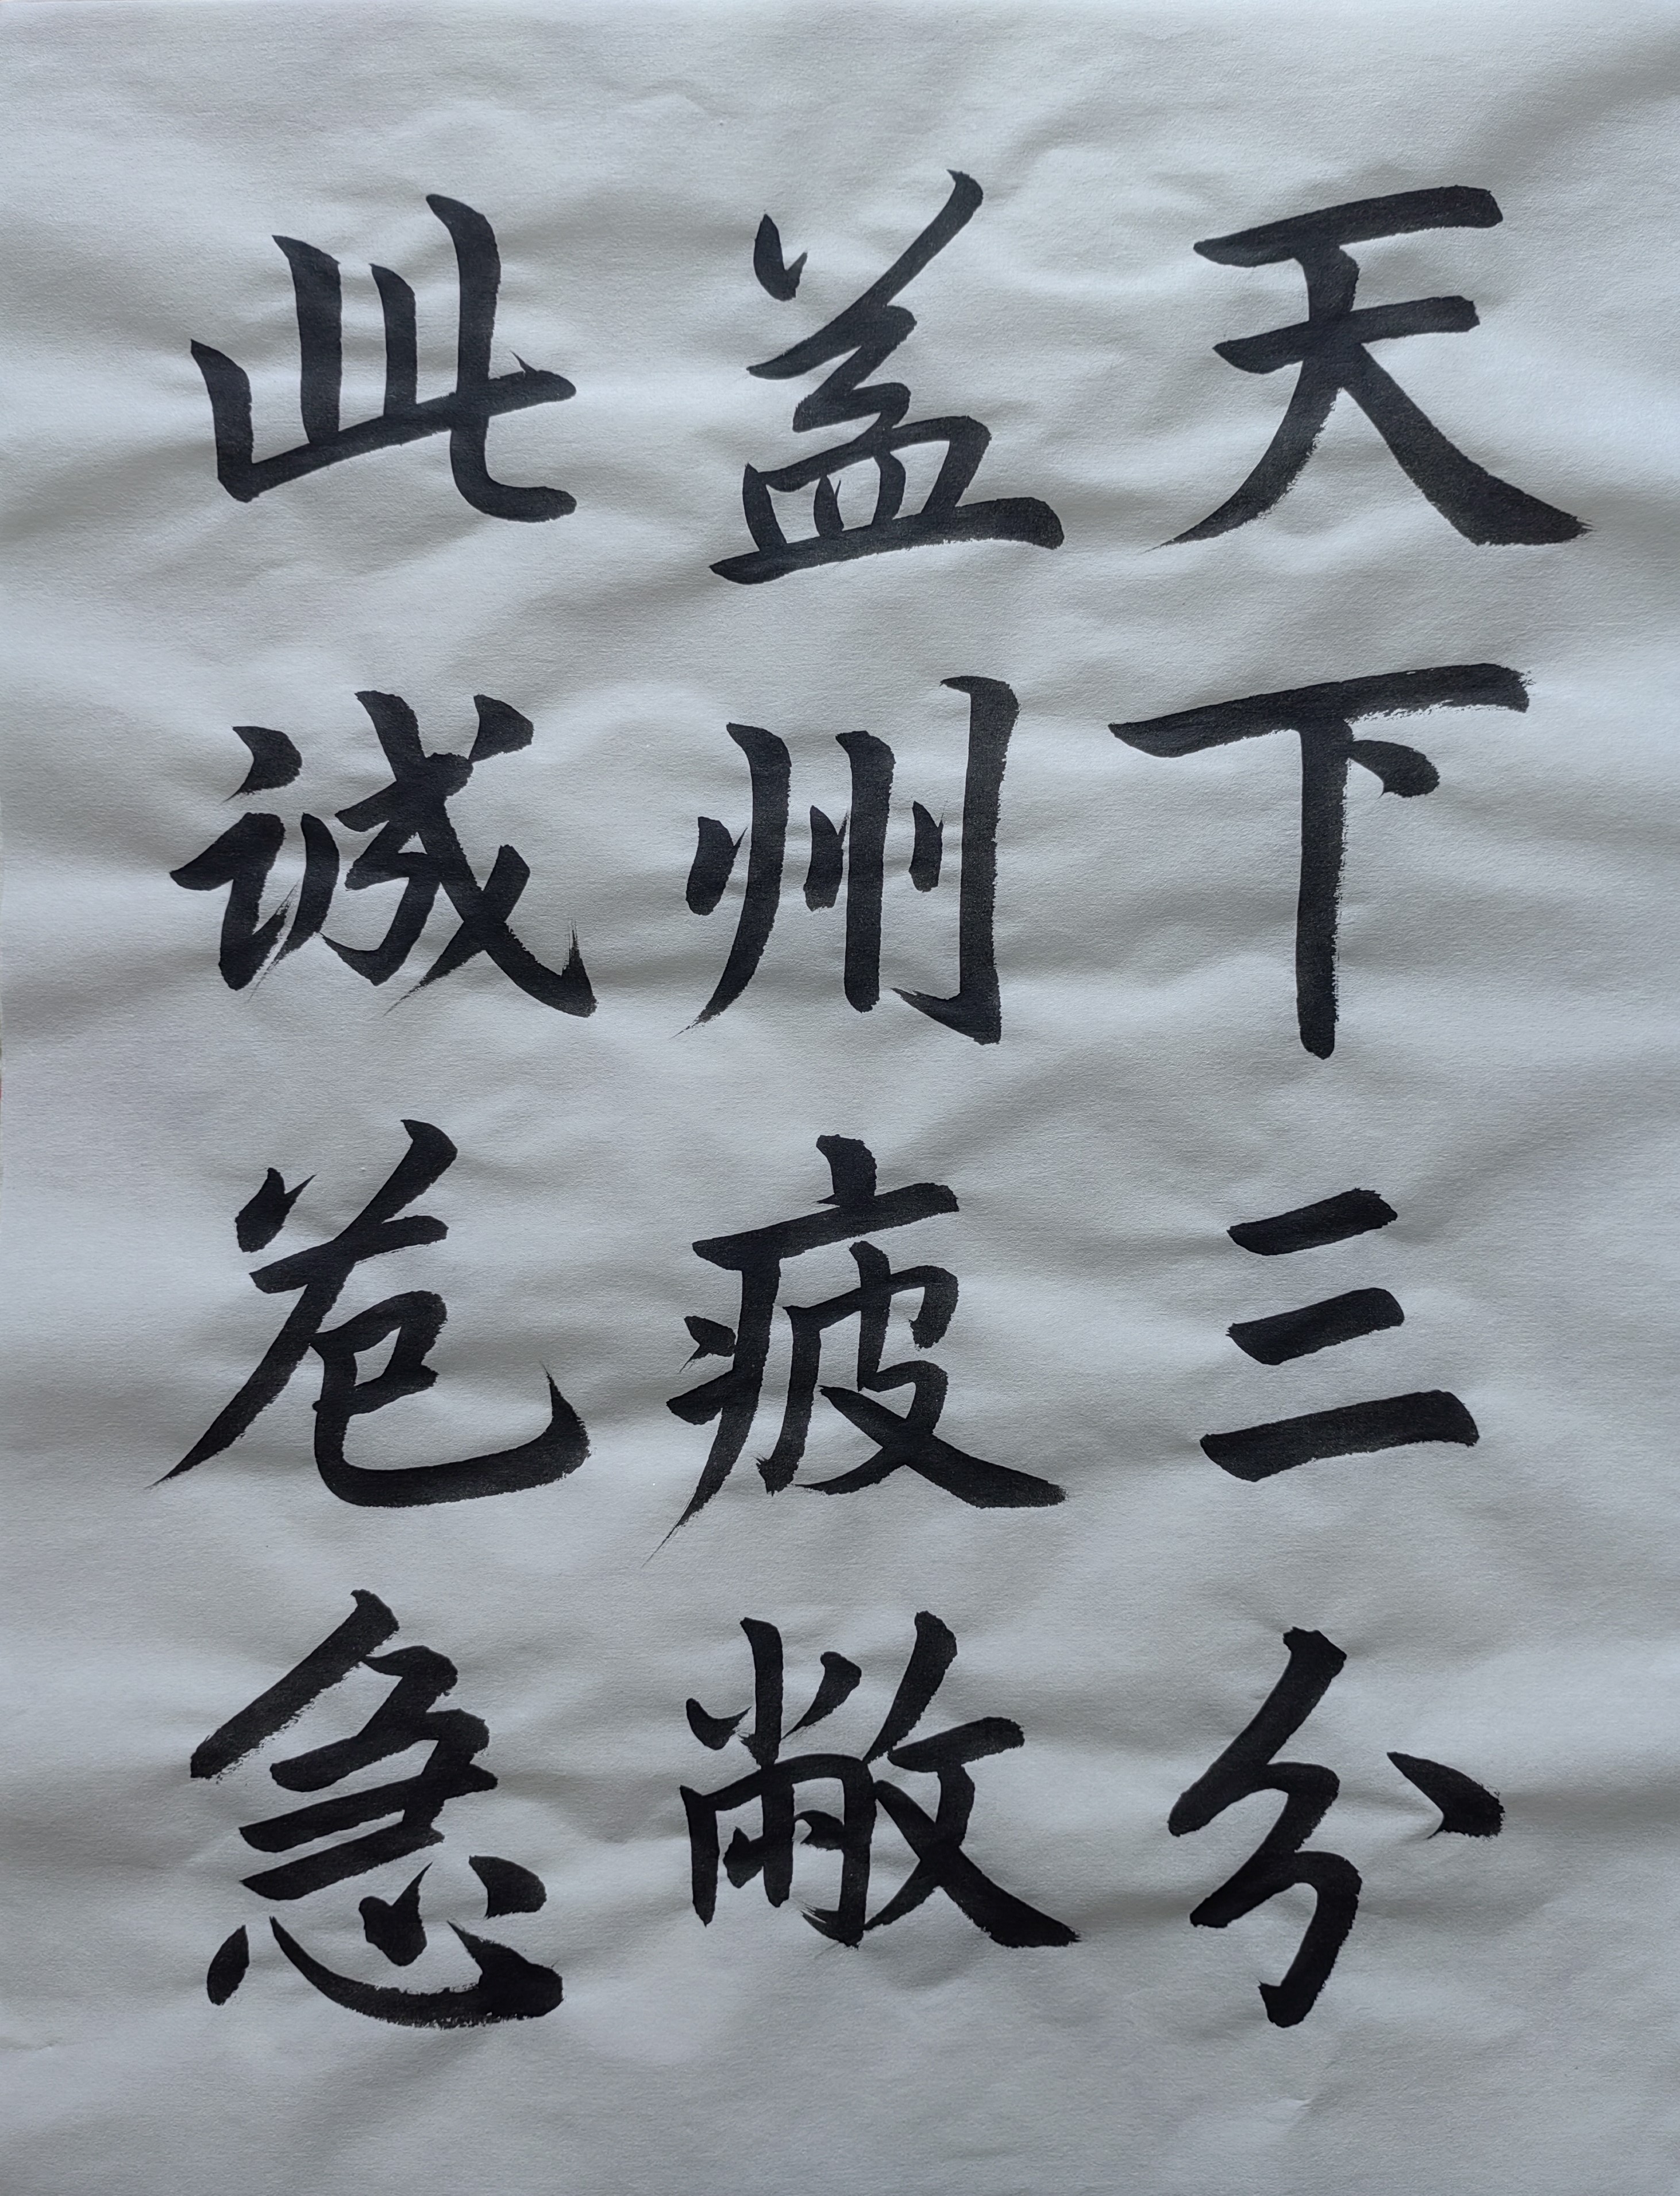 天下三分
益州疲敝
此诚危急